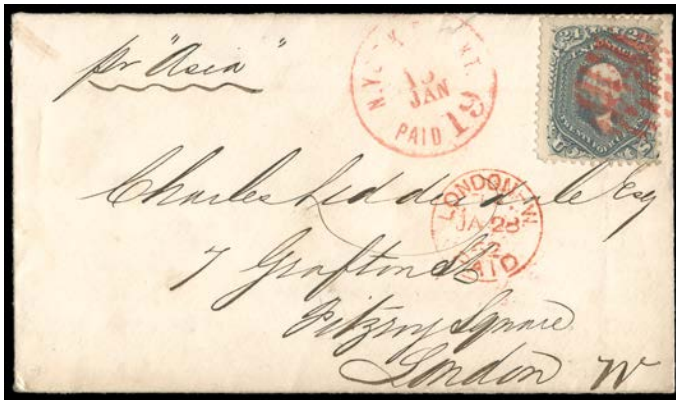 pr "Asia"
N. YORK PKT.
15
JAN
PAID 19
24 24
U S
LONDON. W
JA 28
62
PAID
Charles Lidderdale Esq
7 Grafton St
Fitzroy Square
London W